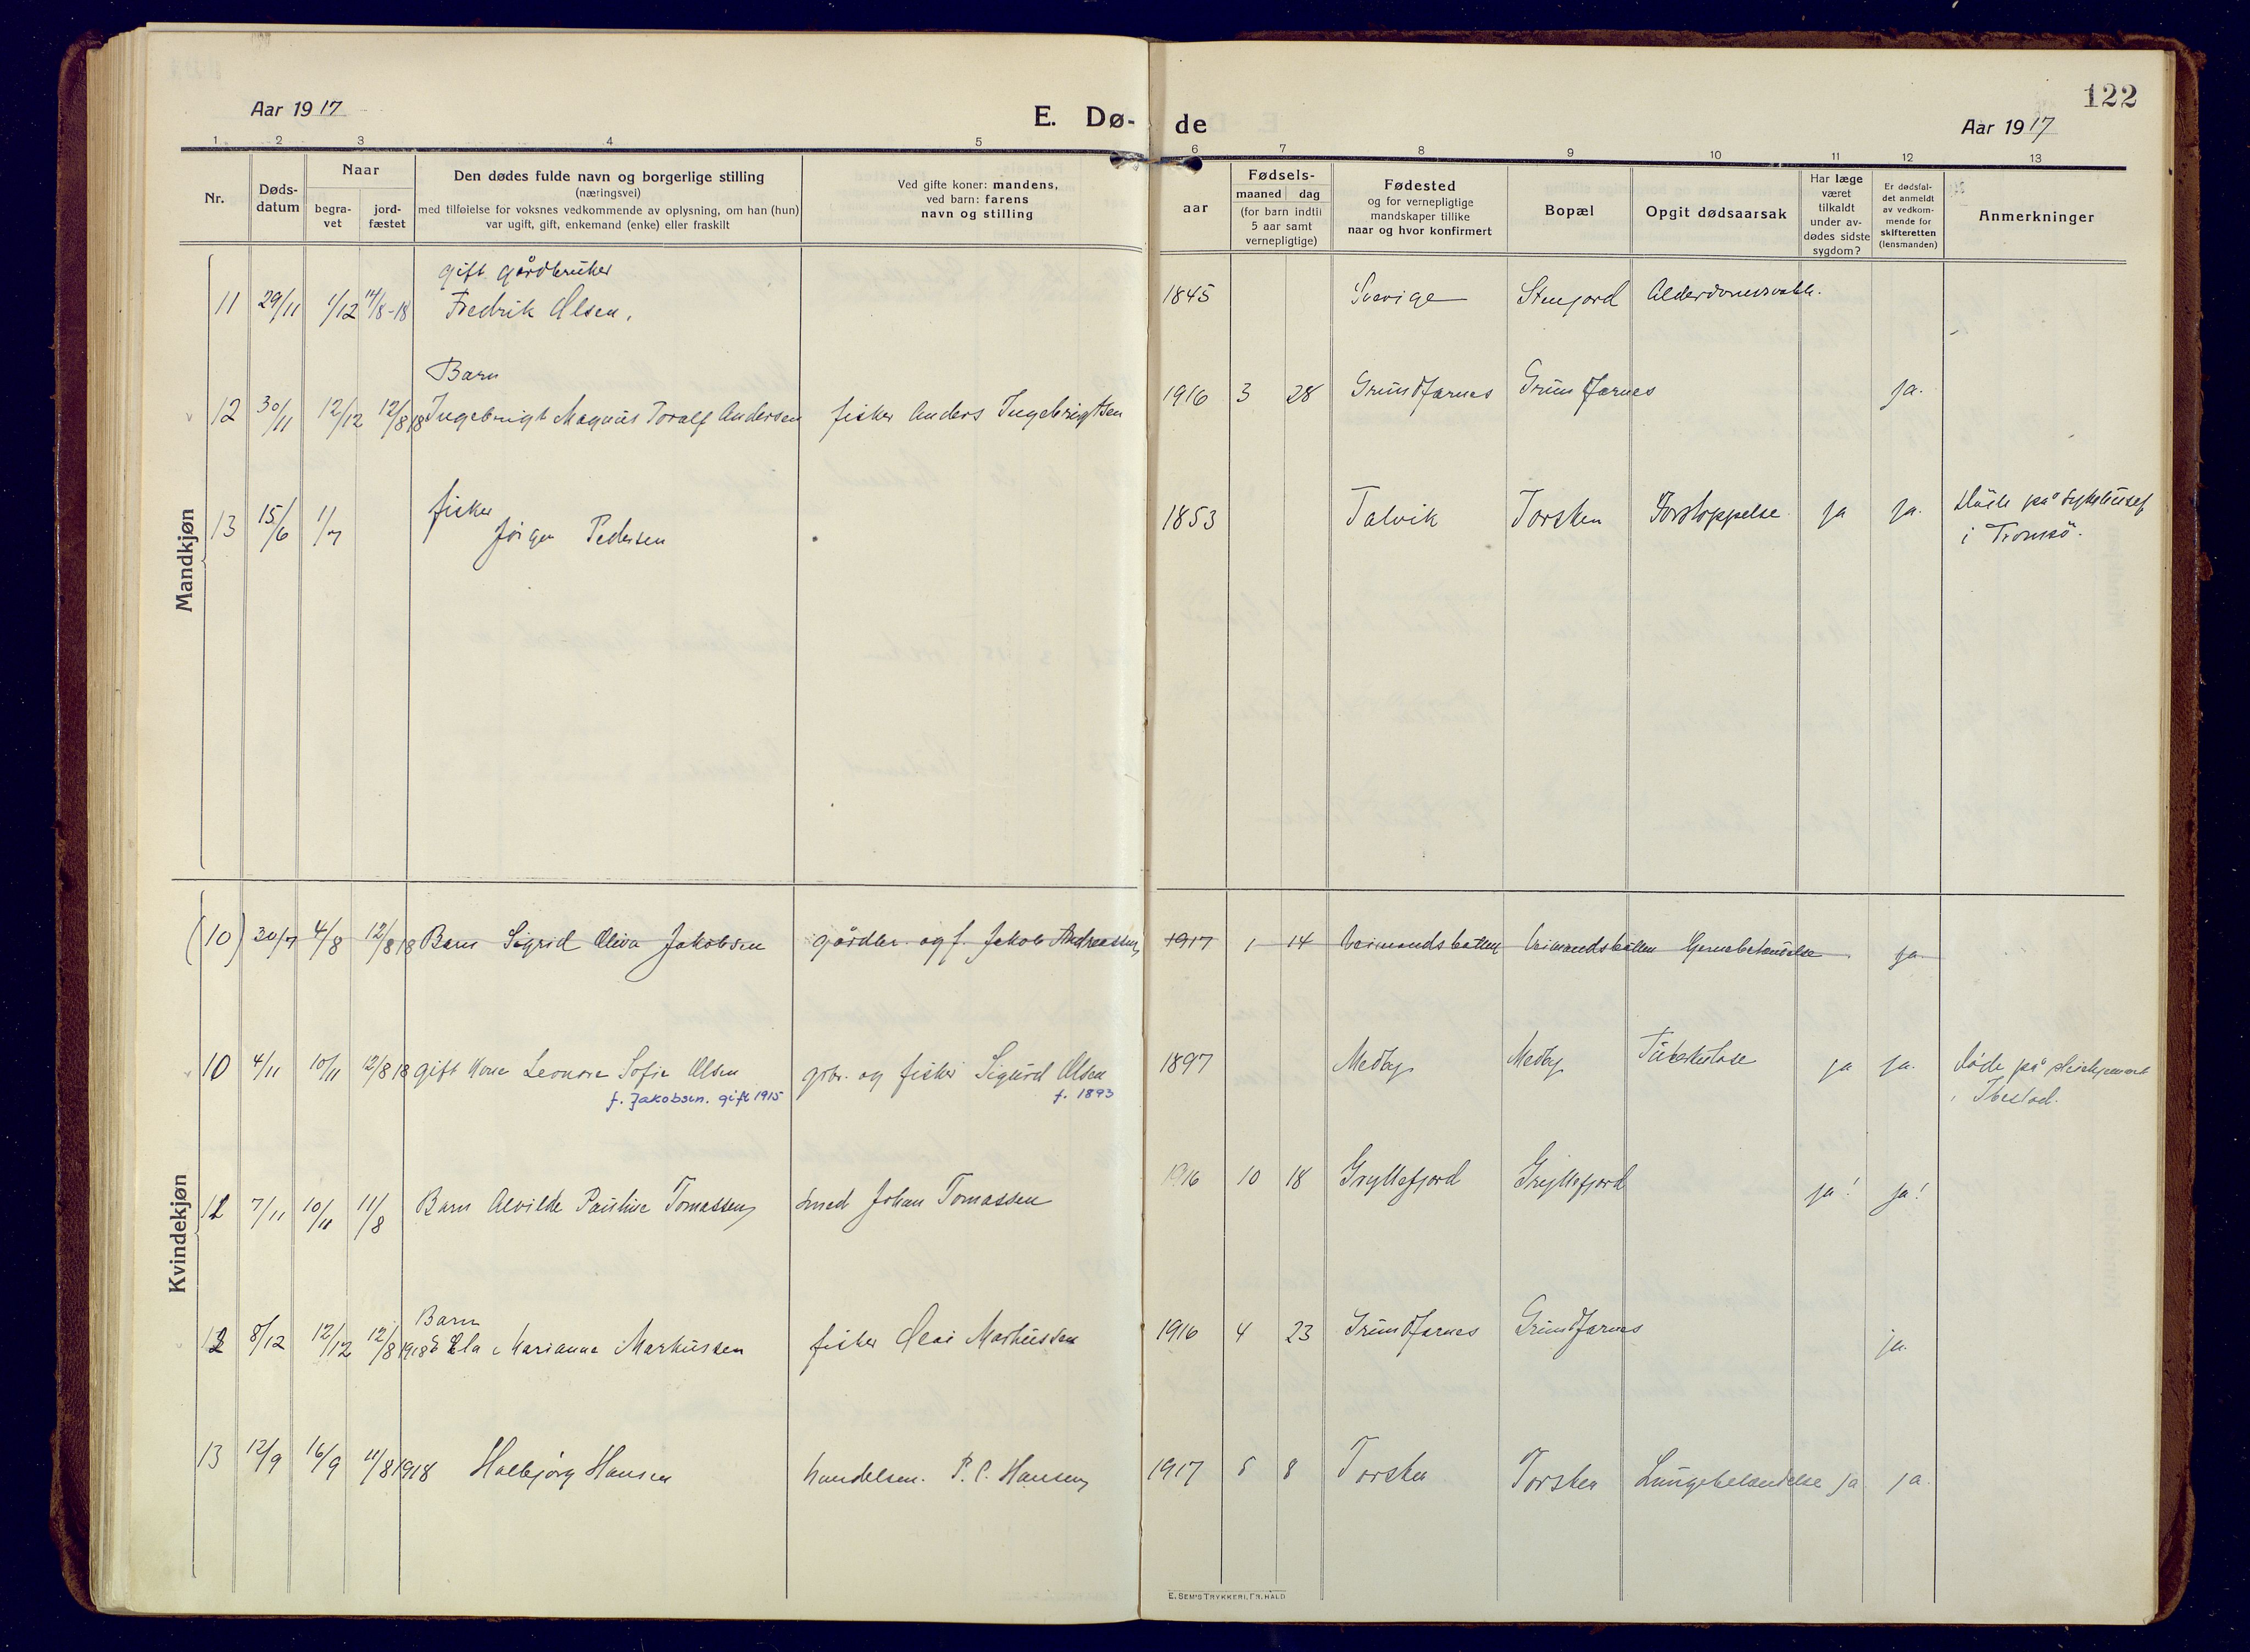 122
Aar 1917
E. Dø- de
Aar 1917
1 2 3 4 5 6 7 8 9 10 11 12 13
Nr.
Døds-
datum
Naar
begra-
vet
jord-
fæstet
Den dødes fulde navn og borgerlige stilling
(næringsvei)
med tilføielse for voksnes vedkommende av oplysning, om han (hun)
var ugift, gift, enkemand (enke) eller fraskilt
Ved gifte koner: mandens,
ved barn: farens
navn og stilling
aar
Fødsels-
maaned dag
(for barn indtil
5 aar samt
vernepligtige)
Fødested
og for vernepligtige
mandskaper tillike
naar og hvor konfirmert
Bopæl
Opgit dødsaarsak
Har læge
været
tilkaldt
under av-
dødes sidste
sygdom?
Er dødsfal-
det anmeldt
av vedkom-
mende for
skifteretten
(lensmanden)
Anmerkninger
Mandkjøn
gift gårdbruker
11 29/11 1/12 14/8-18 Fredrik Olsen. 1845 Sverige Stenjord Alderdomssvakh.
Barn
12 30/11 12/12 12/8 18 Ingebrigt Magnus Toralf Andersen fisker Anders Ingebrigtsen 1916 3 28 Grundfarnes Grundfarnes ja.
fisker
13 15/6 1/7 Jörgen Pedersen 1853 Talvik Torsken Forstoppelse ja ja. Døde på sykehuset
i Tromsö.
Kvindekjøn
(10) 30/7 4/8 12/8 18 Barn Sigrid Oliva Jakobsen gårdbr. og f. Jakob Andreassen 1917 1 14 Veimandsbotten Veimandsbotten ja
10 4/11 10/11 12/8 18 gift kone Leonore Sofie Olsen gbr. og fisker Sigurd Olsen 1897 Medby Medby Tuberkulose ja ja. døde på pleiehjemmet
f. Jakobsen. gift 1915 f. 1893
i Ibestad.
11 7/11 10/11 11/8 Barn Alvilde Pauline Tomassen smed Johan Tomassen 1916 10 18 Gryllefjord Gryllefjord ja! ja!
Barn
12 8/12 12/12 12/8 1918 Ela Marianne Markussen fisker Markussen 1916 4 23 Grundfarnes Grundfarnes ja.
13 12/9 16/9 11/8 1918 Halbjørg Hansen handelsm. P. C. Hansen 1917 5 8 Torsken Torsken Lungebetændelse ja ja.
E. SEM'S TRYKKERI, FR. HALD